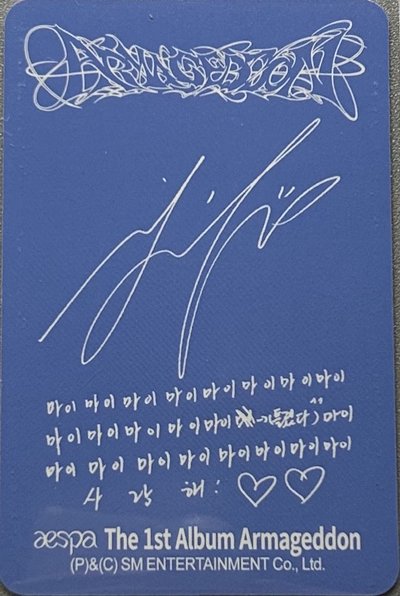 ARMAGEDDON
마이 마이 마이 마이마이마이마이마이
마이 마이 마이 마이마이 마이
마이 마이 마이 마이 마이마이마이마이
사 랑 해 : ♡♡
aespa The 1st Album Armageddon
(P)&(C) SM ENTERTAINMENT Co., Ltd.